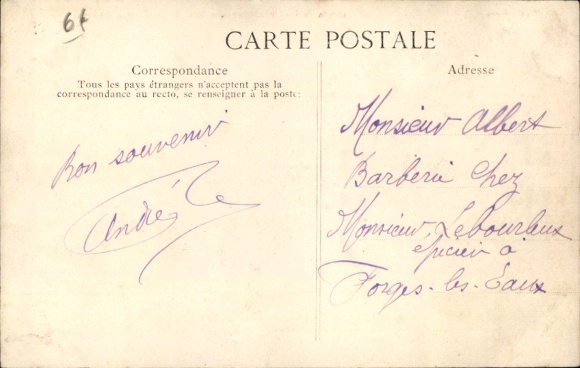 6f
CARTE POSTALE
Correspondance
Tous les pays étrangers n'acceptent pas la
correspondance au recto, se renseigner à la poste:
Bon souvenir
André
Adresse
Monsieur Albert
Barberie Chez
Monsieur Lebourleux
épicier à
Forges-les-Eaux